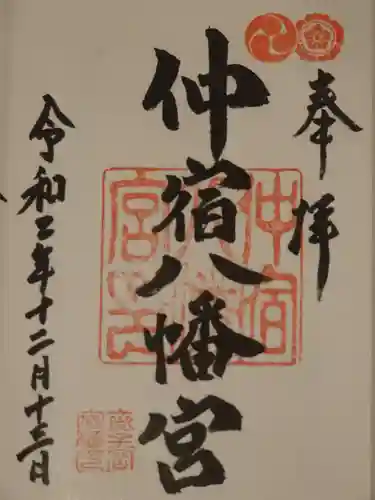 奉拝
仲宿八幡宮
令和二年十二月十三日
仲宿八幡宮之印